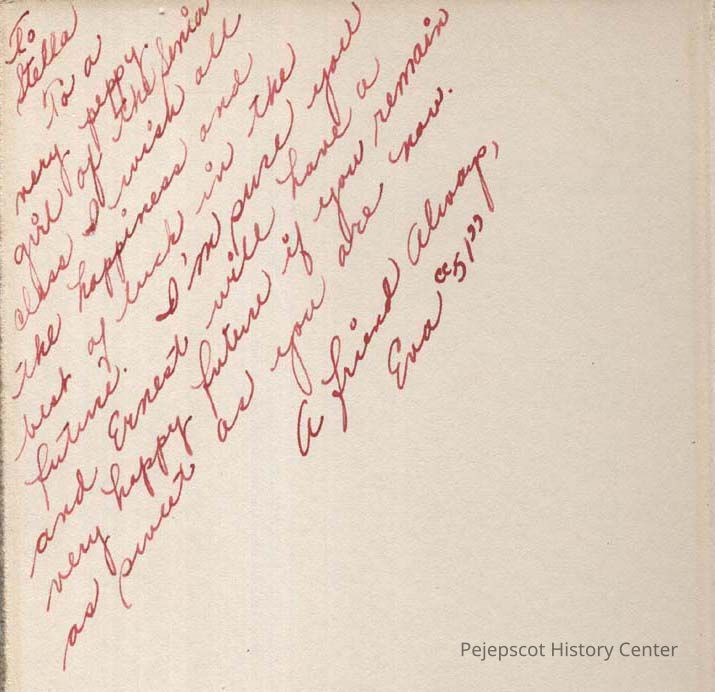 To
Stella
To a
very peppy
girl of the Senior
class I wish all
the happiness and
best of luck in the
future. I'm sure you
and Ernest will have a
very happy future if you remain
as sweet as you are now.
A friend Always,
Eva "51"
Pejepscot History Center